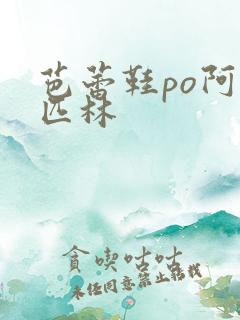 芭蕾鞋po阿
匹林
贪喫咕咕
未经同意禁止转载